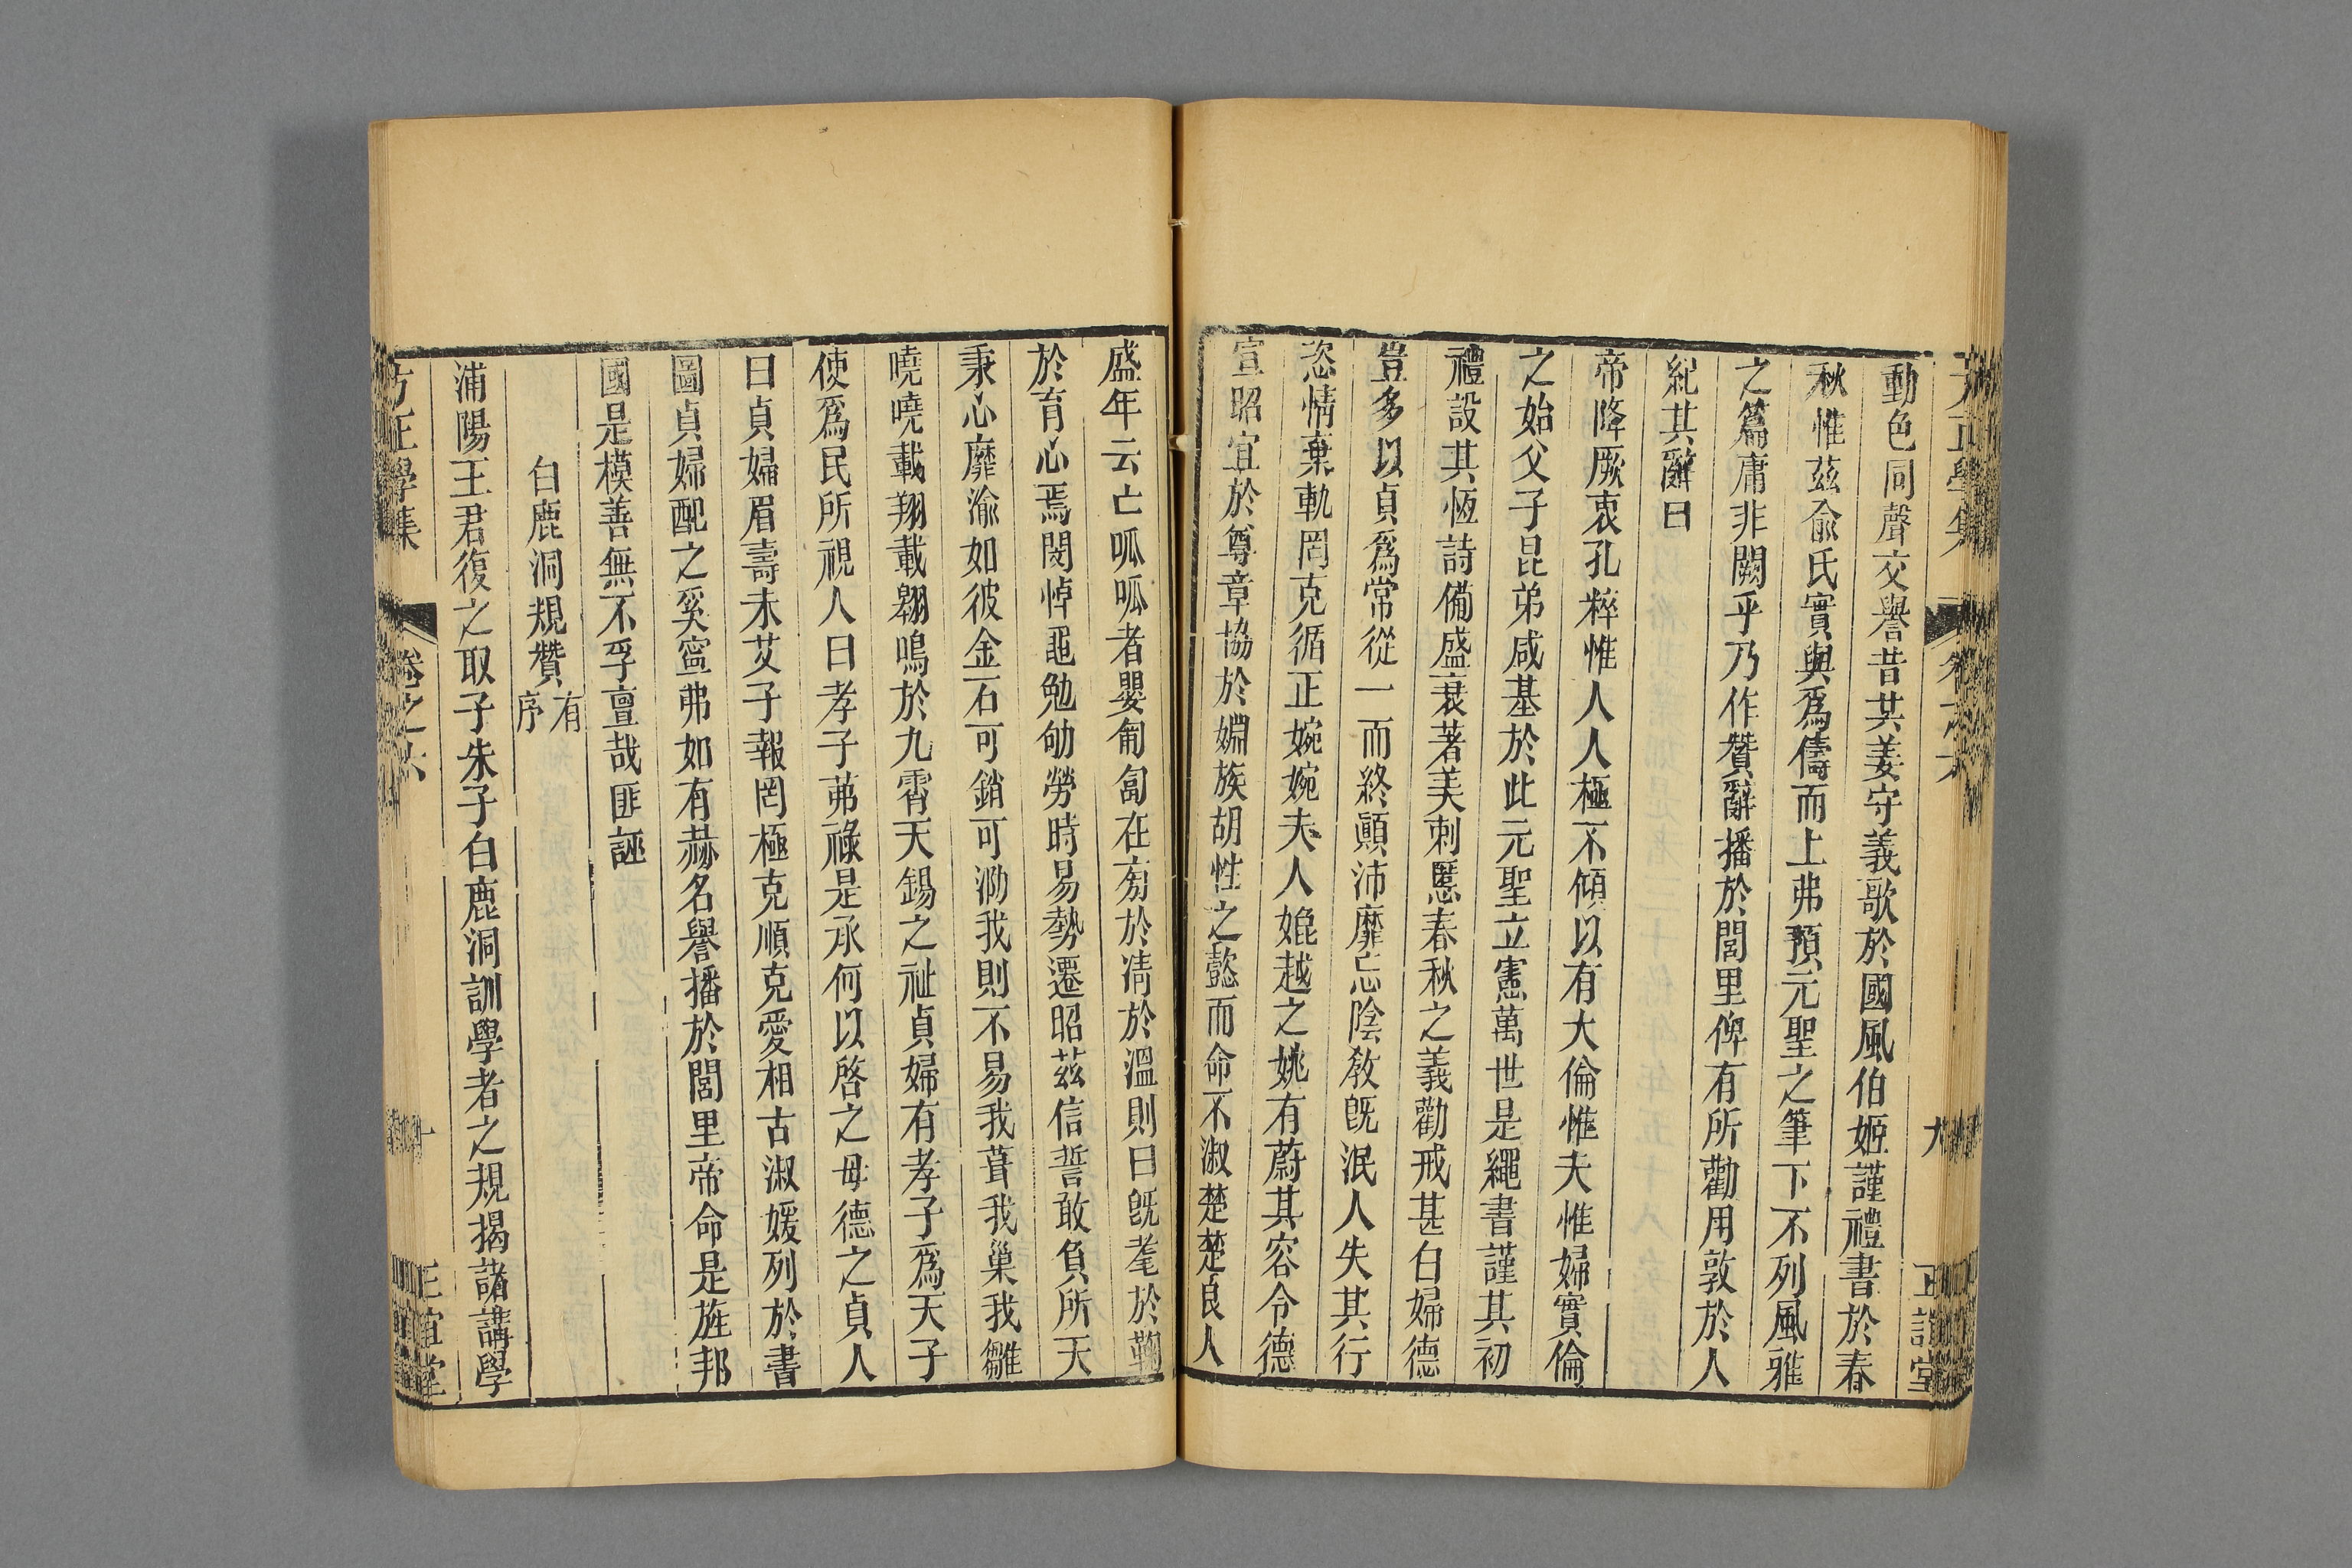 方正學集 卷之六 九 正誼堂
動色同聲交譽昔共姜守義歌於國風伯姬謹禮書於春
秋惟茲兪氏實與爲儔而上弗預元聖之筆下不列風雅
之篇庸非闕乎乃作贊辭播於閭里俾有所勸用敦於人
紀其辭曰
帝降厥衷孔粹惟人人極不傾以有大倫惟夫惟婦實倫
之始父子昆弟咸基於此元聖立憲萬世是繩書謹其初
禮設其恆詩備盛衰著美刺慝春秋之義勸戒甚白婦德
豈多以貞爲常從一而終顚沛靡忘陰敎旣泯人失其行
恣情棄軌罔克循正婉婉夫人媲越之姚有蔚其容令德
宣昭宜於尊章協於婣族胡性之懿而命不淑楚楚良人
盛年云亡呱呱者嬰匍匐在旁於凊於溫則曰旣耄於鞠
於育心焉閔悼黽勉劬勞時易勢遷昭茲信誓敢負所天
秉心靡渝如彼金石可銷可泐我則不易我葺我巢我雛
嘵嘵載翔載翶鳴於九霄天錫之祉貞婦有孝子爲天子
使爲民所視人曰孝子茀祿是承何以啓之母德之貞人
曰貞婦眉壽未艾子報罔極克順克愛相古淑媛列於書
圖貞婦配之奚寧弗如有赫名譽播於閭里帝命是旌邦
國是模善無不孚亶哉匪誣
白鹿洞規贊有序
浦陽王君復之取子朱子白鹿洞訓學者之規揭諸講學
方正學集 卷之六 十 正誼堂